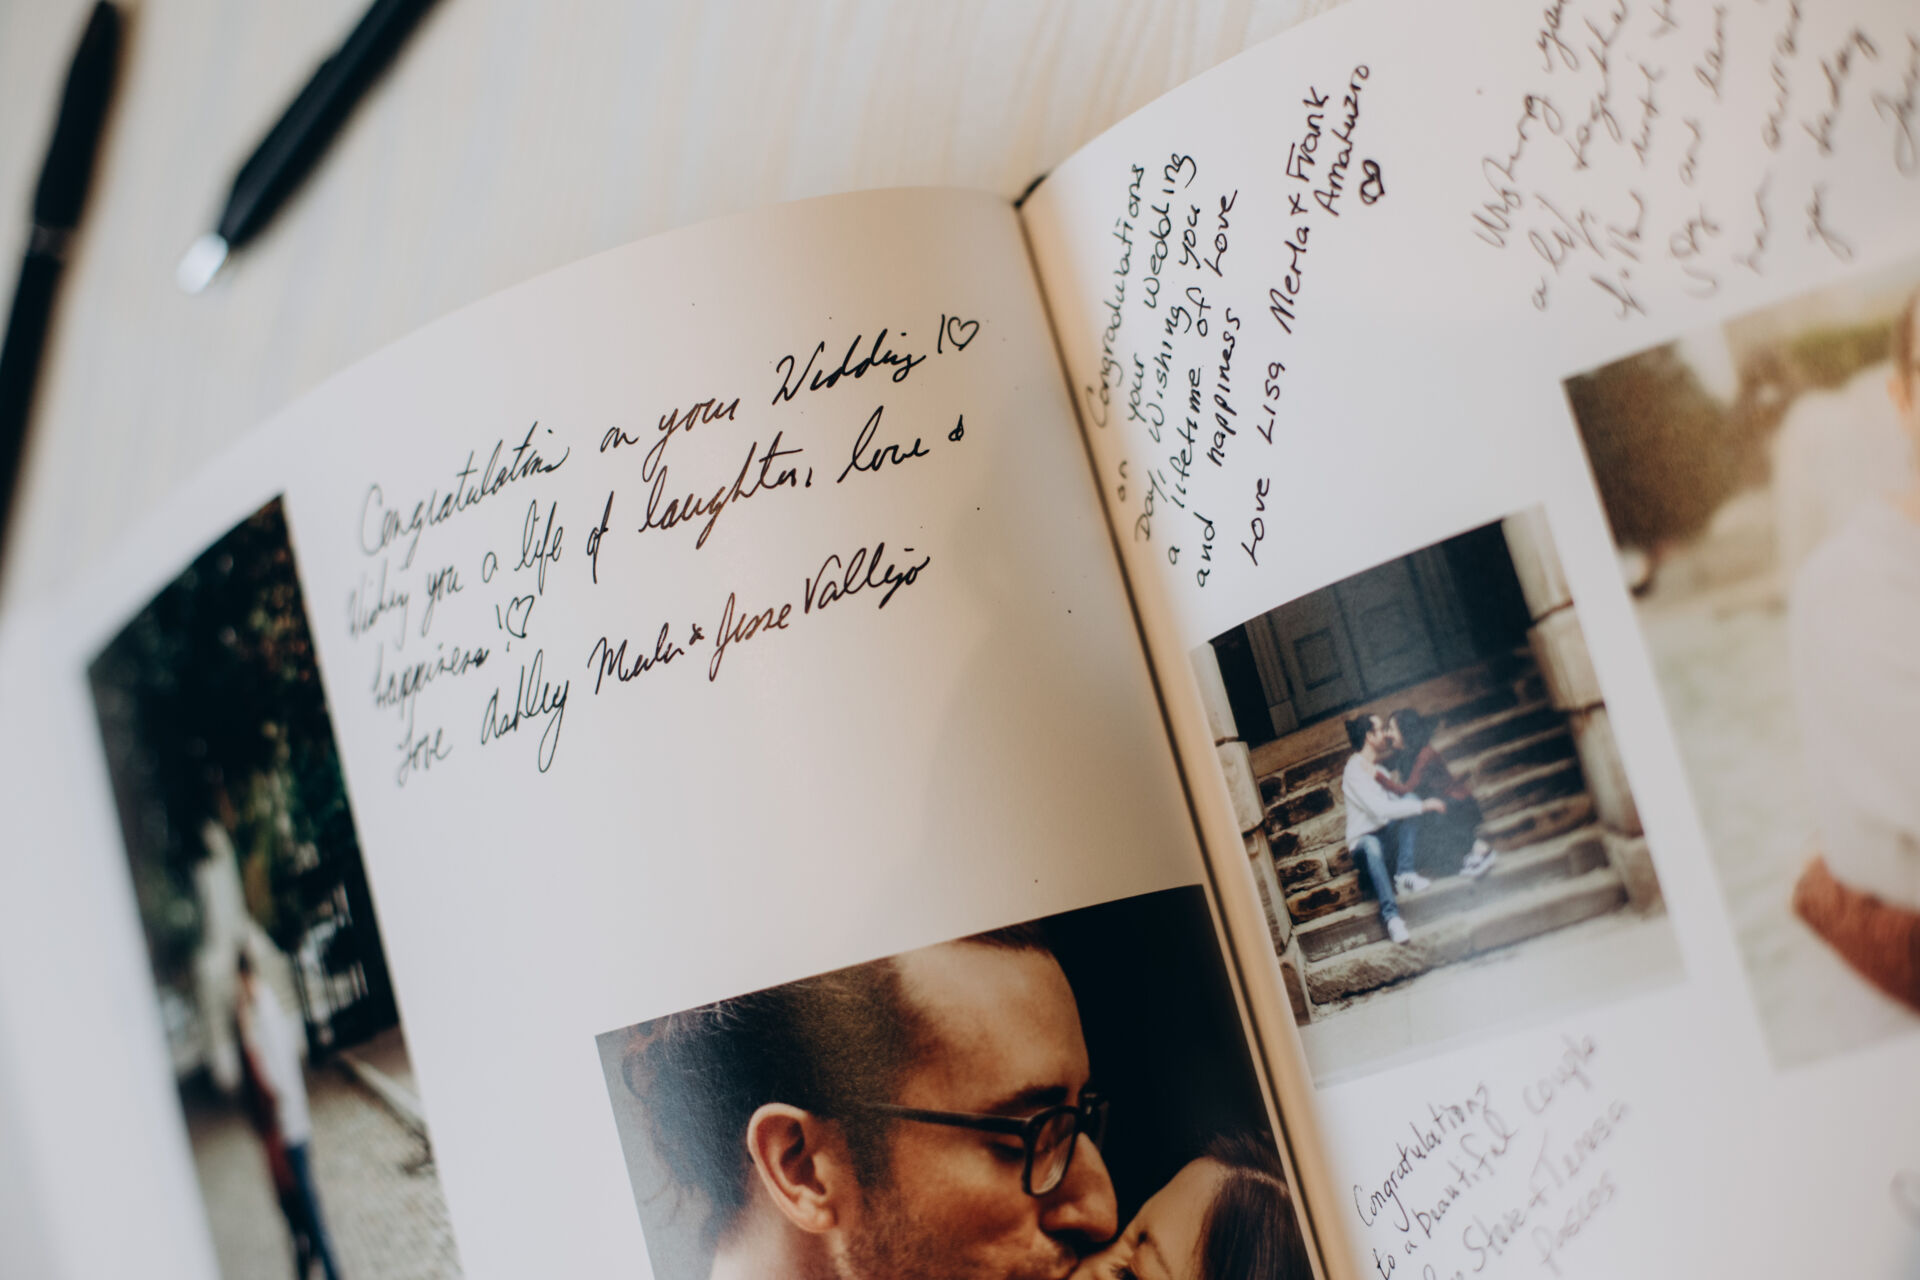 Congratulations on your Wedding!♡
Wishing you a life of laughter, love &
happiness!♡
Love Ashley Merla & Jesse Vallejo
Congradulations
on your Wedding
Day, Wishing you
a lifetime of Love
and happiness
Love Lisa Merla & Frank
Amatuzio
Wishing you
a life together
of the
and
you today
Congratulations
to a beautiful couple
Steve + Teresa